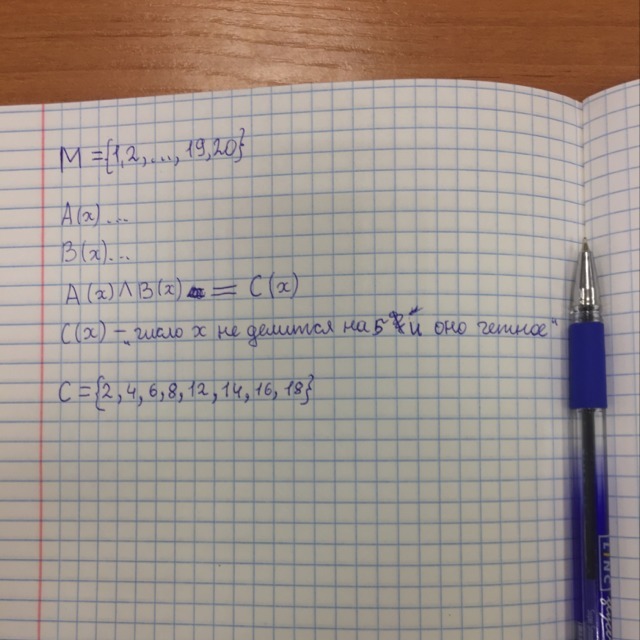 M = {1,2,...,19,20}
A(x)...
B(x)...
A(x) ∧ B(x) = C(x)
C(x) – „число x не делится на 5" и оно четное"
C = {2, 4, 6, 8, 12, 14, 16, 18}